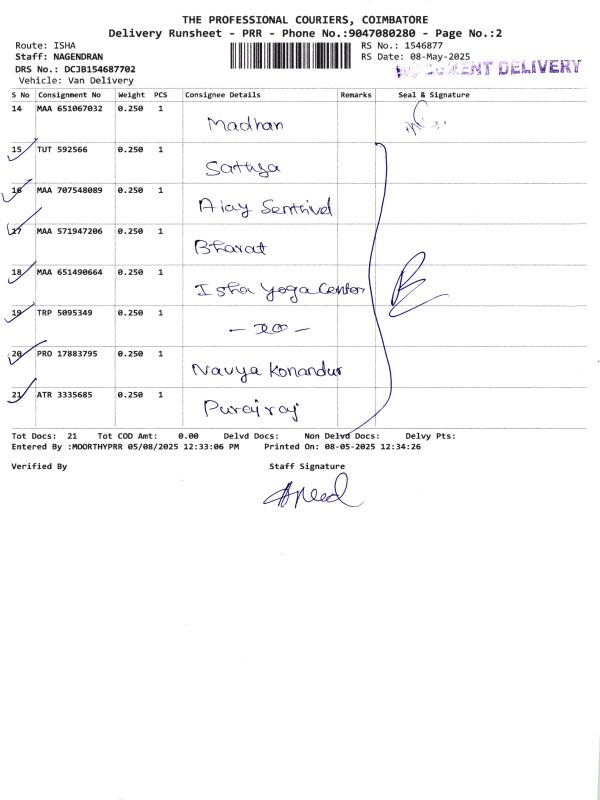 THE PROFESSIONAL COURIERS, COIMBATORE
Delivery Runsheet - PRR - Phone No.:9047080280 - Page No.:2
Route: ISHA RS No.: 1546877
Staff: NAGENDRAN RS Date: 08-May-2025
DRS No.: DCJB154687702 DOCUMENT DELIVERY
Vehicle: Van Delivery
S No Consignment No Weight PCS Consignee Details Remarks Seal & Signature
14 MAA 651067032 0.250 1 Madhan
15 TUT 592566 0.250 1 Sathya
16 MAA 707548089 0.250 1 Ajay Senthivel
17 MAA 571947206 0.250 1 Bharat
18 MAA 651490664 0.250 1 Isha Yoga Center
19 TRP 5095349 0.250 1 — do —
20 PRO 17883795 0.250 1 Navya Konandur
21 ATR 3335685 0.250 1
Tot Docs: 21 Tot COD Amt: 0.00 Delvd Docs: Non Delvd Docs: Delvy Pts:
Entered By :MOORTHYPRR 05/08/2025 12:33:06 PM Printed On: 08-05-2025 12:34:26
Verified By Staff Signature